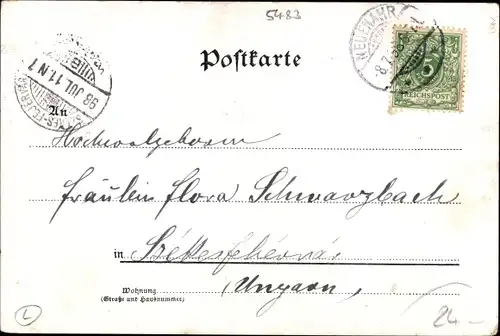 5483
Postkarte
NEUENAHR
8.7.98
5
REICHSPOST
98 JUL 11. N 1
An
Hochwohlgeboren
Fräulein Flora Schwarzbach
in Székesfehérvár
Ungarn
Wohnung
(Straße und Hausnummer)
L
24-